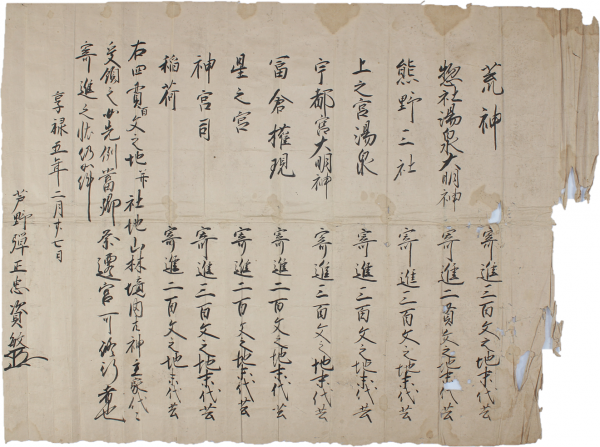 荒神 寄進三百文之地末代共
惣社湯泉大明神 寄進二貫文之地末代共
熊野三社 寄進三百文之地末代共
上之宮湯泉 寄進三百文之地末代共
宇都宮大明神 寄進三百文之地末代共
冨倉権現 寄進二百文之地末代共
星之宮 寄進二百文之地末代共
神宮司 寄進三百文之地末代共
稲荷 寄進二百文之地末代共
右四貫百文之地并社地山林境内神主家代々
受領之先例當郷祭遷宮可行者也
寄進之状仍如件
享禄五年二月廿七日
芦野弾正忠資敏